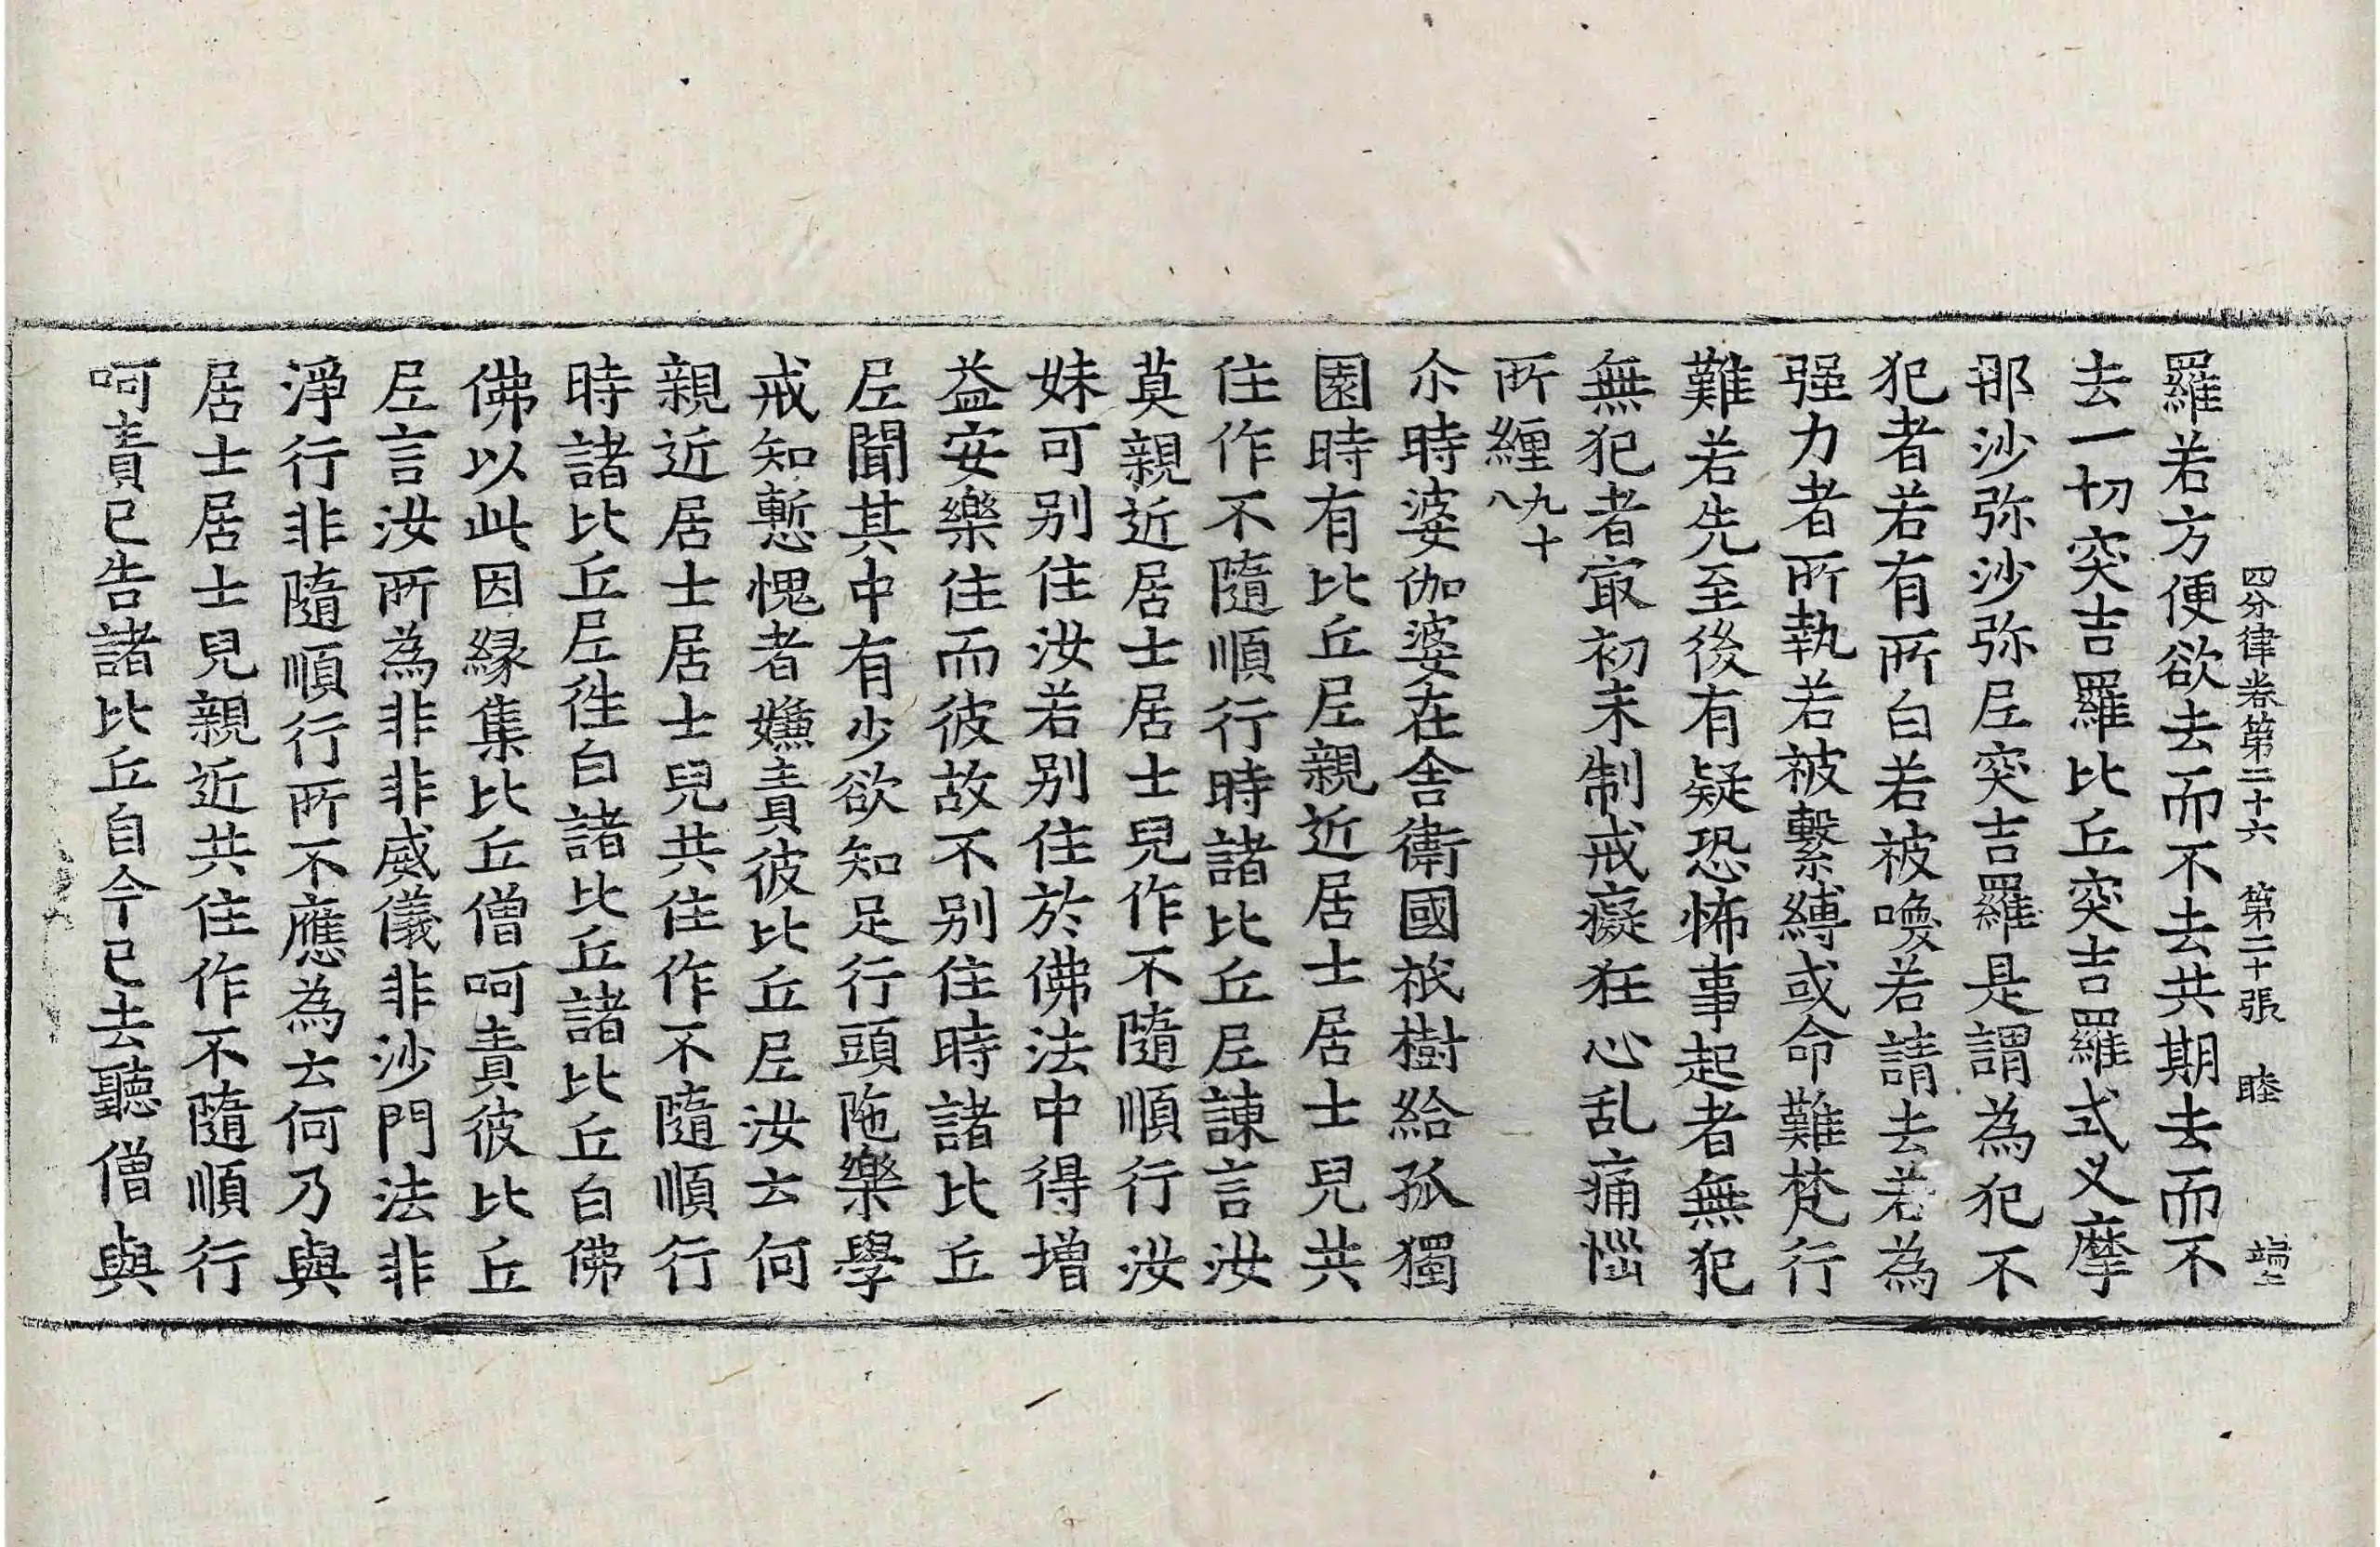 四分律卷第二十六　第二十張　睦
羅若方便欲去而不去共期去而不
去一切突吉羅比丘突吉羅式叉摩
那沙弥沙弥𡰱突吉羅是謂為犯不
犯者若有所白若被喚若請去若為
强力者所執若被繫縛或命難梵行
難若先至後有疑恐怖事起者無犯
無犯者㝡初未制戒癡狂心乱痛惱
所纏九十八
尒時婆伽婆在舍衛國祇樹給孤獨
園時有比丘𡰱親近居士居士兒共
住作不隨順行時諸比丘𡰱諫言汝
莫親近居士居士兒作不隨順行汝
妹可別住汝若別住於佛法中得增
益安樂住而彼故不別住時諸比丘
𡰱聞其中有少欲知足行頭陁樂學
戒知慙愧者嫌責彼比丘𡰱汝云何
親近居士居士兒共住作不隨順行
時諸比丘𡰱徃白諸比丘諸比丘白佛
佛以此因緣集比丘僧呵責彼比丘
𡰱言汝所為非非威儀非沙門法非
淨行非隨順行所不應為云何乃與
居士居士兒親近共住作不隨順行
呵責已告諸比丘自今已去聽僧與